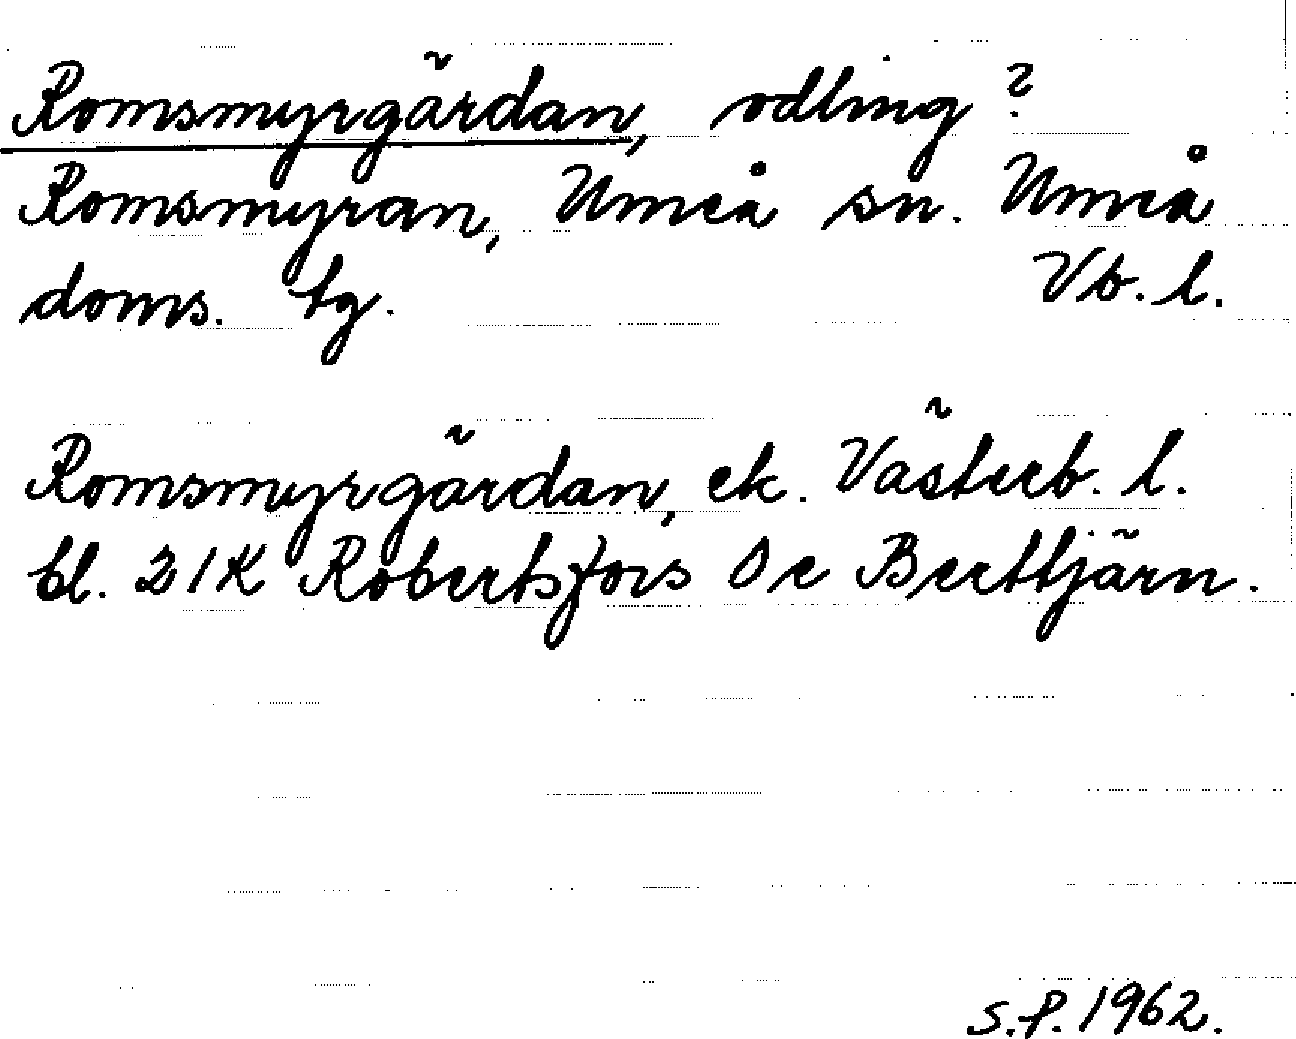 Romsmyrgärdan, odling?
Romsmyran, Umeå sn. Umeå
doms. tg. Vb. l.
Romsmyrgärdan, ek. Västerb. l.
bl. 21K Robertsfors Öe Berttjärn.
S.P. 1962.